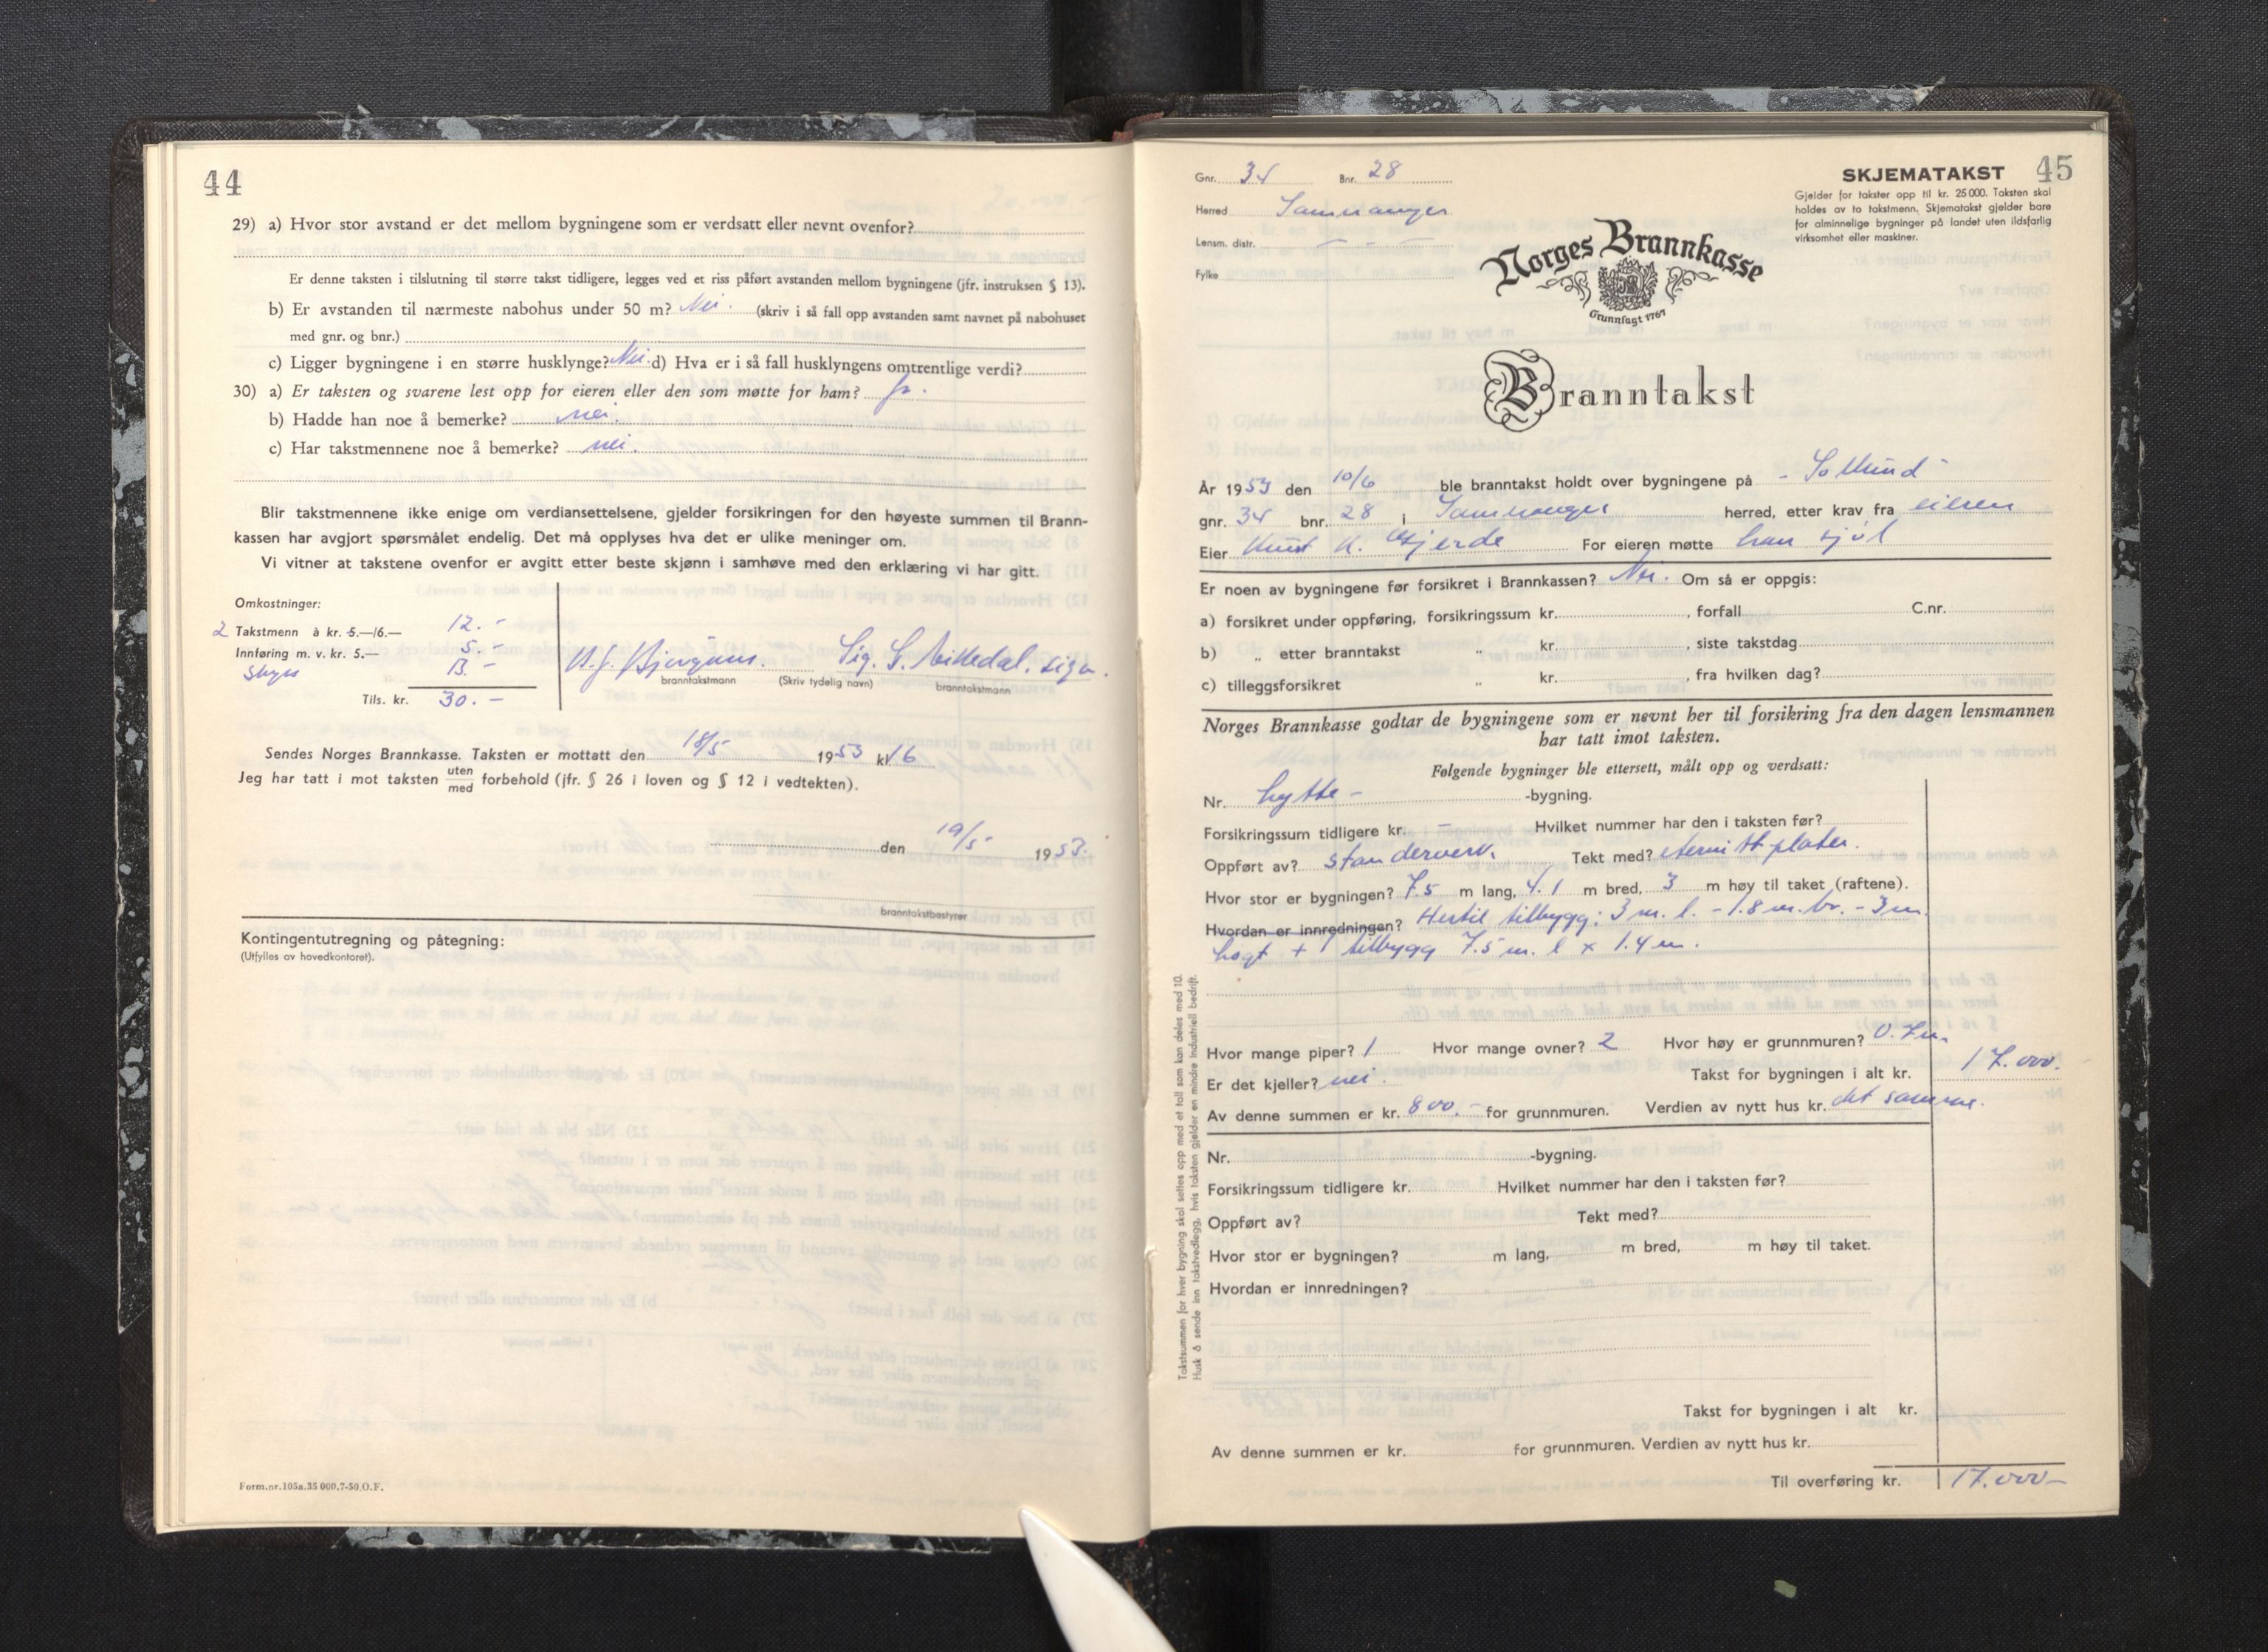 44
29) a) Hvor stor avstand er det mellom bygningene som er verdsatt eller nevnt ovenfor?
Er denne taksten i tilslutning til større takst tidligere, legges ved et riss påført avstanden mellom bygningene (jfr. instruksen § 13).
b) Er avstanden til nærmeste nabohus under 50 m? Nei. (skriv i så fall opp avstanden samt navnet på nabohuset
med gnr. og bnr.)
c) Ligger bygningene i en større husklynge? Nei. d) Hva er i så fall husklyngens omtrentlige verdi?
30) a) Er taksten og svarene lest opp for eieren eller den som møtte for ham? ja.
b) Hadde han noe å bemerke? nei.
c) Har takstmennene noe å bemerke? nei.
Blir takstmennene ikke enige om verdiansettelsene, gjelder forsikringen for den høyeste summen til Brann-
kassen har avgjort spørsmålet endelig. Det må opplyses hva det er ulike meninger om.
Vi vitner at takstene ovenfor er avgitt etter beste skjønn i samhøve med den erklæring vi har gitt.
Omkostninger:
2 Takstmenn à kr. 5.—/6.— 12.-
Innføring m. v. kr. 5.— 5.-
Skyss 13.-
Tils. kr. 30.-
sign.
branntakstmann (Skriv tydelig navn) branntakstmann
Sendes Norges Brannkasse. Taksten er mottatt den 18/5 1953 kl 16
Jeg har tatt i mot taksten uten/med forbehold (jfr. § 26 i loven og § 12 i vedtekten).
den 19/5 1953.
branntakstbestyrer
Kontingentutregning og påtegning:
(Utfylles av hovedkontoret).
Form.nr.105a.35 000.7-50.O.F.
45
SKJEMATAKST
Gjelder for takster opp til kr. 25 000. Taksten skal
holdes av to takstmenn. Skjematakst gjelder bare
for alminnelige bygninger på landet uten ildsfarlig
virksomhet eller maskiner.
Gnr. 34 Bnr. 28
Herred Samnanger
Lensm. distr. — — —
Fylke
Norges Brannkasse
Grunnlagt 1767
Branntakst
År 1953 den 10/6 ble branntakst holdt over bygningene på
gnr. 34 bnr. 28 i Samnanger herred, etter krav fra eieren
Eier Knut K. Gjerde For eieren møtte han sjøl
Er noen av bygningene før forsikret i Brannkassen? Nei. Om så er oppgis:
a) forsikret under oppføring, forsikringssum kr. , forfall C.nr.
b) „ etter branntakst „ kr. , siste takstdag
c) tilleggsforsikret „ kr. , fra hvilken dag?
Norges Brannkasse godtar de bygningene som er nevnt her til forsikring fra den dagen lensmannen
har tatt imot taksten.
Følgende bygninger ble ettersett, målt opp og verdsatt:
Nr. hytte - -bygning.
Forsikringssum tidligere kr. - Hvilket nummer har den i taksten før?
Oppført av? standerverk. Tekt med? eternittplater.
Hvor stor er bygningen? 7.5 m lang, 4.1 m bred, 3 m høy til taket (raftene).
Hvordan er innredningen? Hertil tilbygg: 3 m. l. - 1.8 m. br. - 3 m.
høgt + 1 tilbygg 7.5 m. l x 1.4 m.
Hvor mange piper? 1 Hvor mange ovner? 2 Hvor høy er grunnmuren? 0.7 m.
Er det kjeller? nei. Takst for bygningen i alt kr. 17.000.-
Av denne summen er kr. 800.- for grunnmuren. Verdien av nytt hus kr. det samme.
Nr. -bygning.
Forsikringssum tidligere kr. Hvilket nummer har den i taksten før?
Oppført av? Tekt med?
Hvor stor er bygningen? m lang, m bred, m høy til taket.
Hvordan er innredningen?
Takst for bygningen i alt kr.
Av denne summen er kr. for grunnmuren. Verdien av nytt hus kr.
Til overføring kr. 17.000-
Takstsummen for hver bygning skal settes opp med et tall som kan deles med 10.
Husk å sende inn takstvedlegg, hvis taksten gjelder en mindre industriell bedrift.